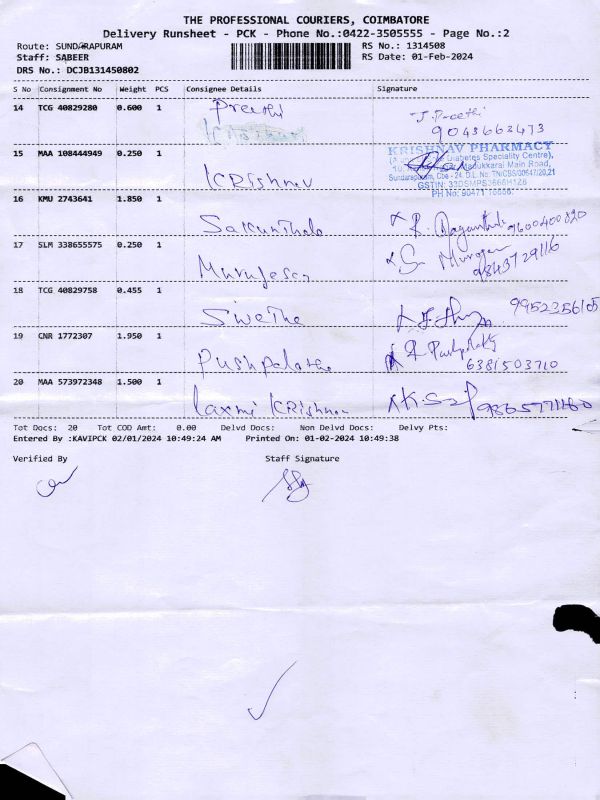 THE PROFESSIONAL COURIERS, COIMBATORE
Delivery Runsheet - PCK - Phone No.:0422-3505555 - Page No.:2
Route: SUNDARAPURAM RS No.: 1314508
Staff: SABEER RS Date: 01-Feb-2024
DRS No.: DCJB131450802
S No Consignment No Weight PCS Consignee Details Signature
14 TCG 40829280 0.600 1 Preethi J. Preethi
9043663473
15 MAA 108444949 0.250 1 KRishnav
KRISHNAV PHARMACY
Diabetes Speciality Centre),
Main Road,
16 KMU 2743641 1.850 1 Sakunthala 9600400820
17 SLM 338655575 0.250 1 Murugesan Murugan
9843729116
18 TCG 40829758 0.455 1 Swetha 9952356105
19 CNR 1772307 1.950 1 Pushpalatha
6381503710
20 MAA 573972348 1.500 1 Laxmi KRishnan
Tot Docs: 20 Tot COD Amt: 0.00 Delvd Docs: Non Delvd Docs: Delvy Pts:
Entered By :KAVIPCK 02/01/2024 10:49:24 AM Printed On: 01-02-2024 10:49:38
Verified By Staff Signature